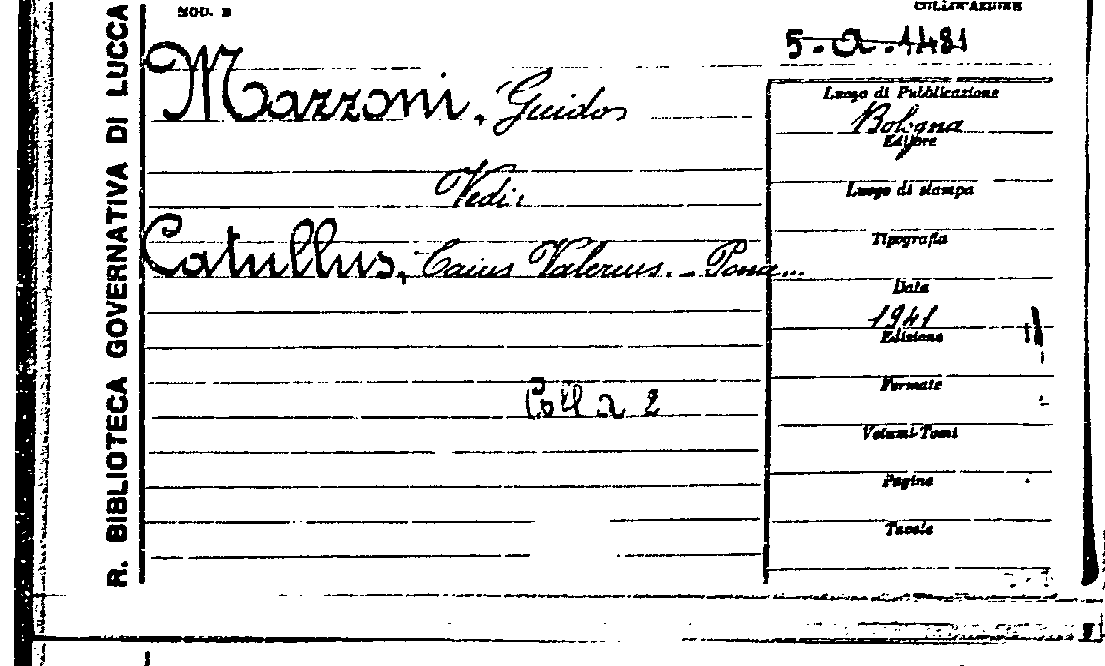 MOD. B
COLLOCAZIONE
R. BIBLIOTECA GOVERNATIVA DI LUCCA
Mazzoni, Guido
Vedi:
Catullus, Caius Valerius. -
Coll a 2
Luogo di Pubblicazione
Bologna
Editore
Luogo di stampa
Tipografia
Data
1941
Edizione
Formato
Volumi-Tomi
Pagine
Tavole